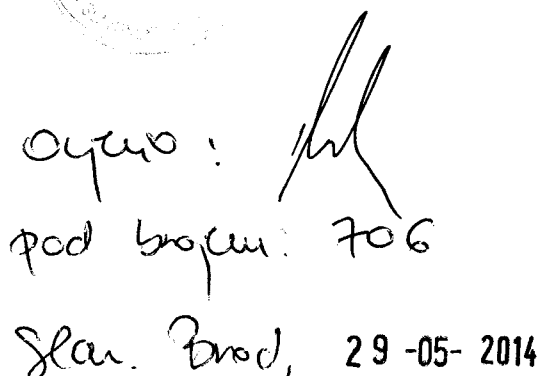 Ovjerio :
pod brojem: 706
Slav. Brod, 29-05-2014